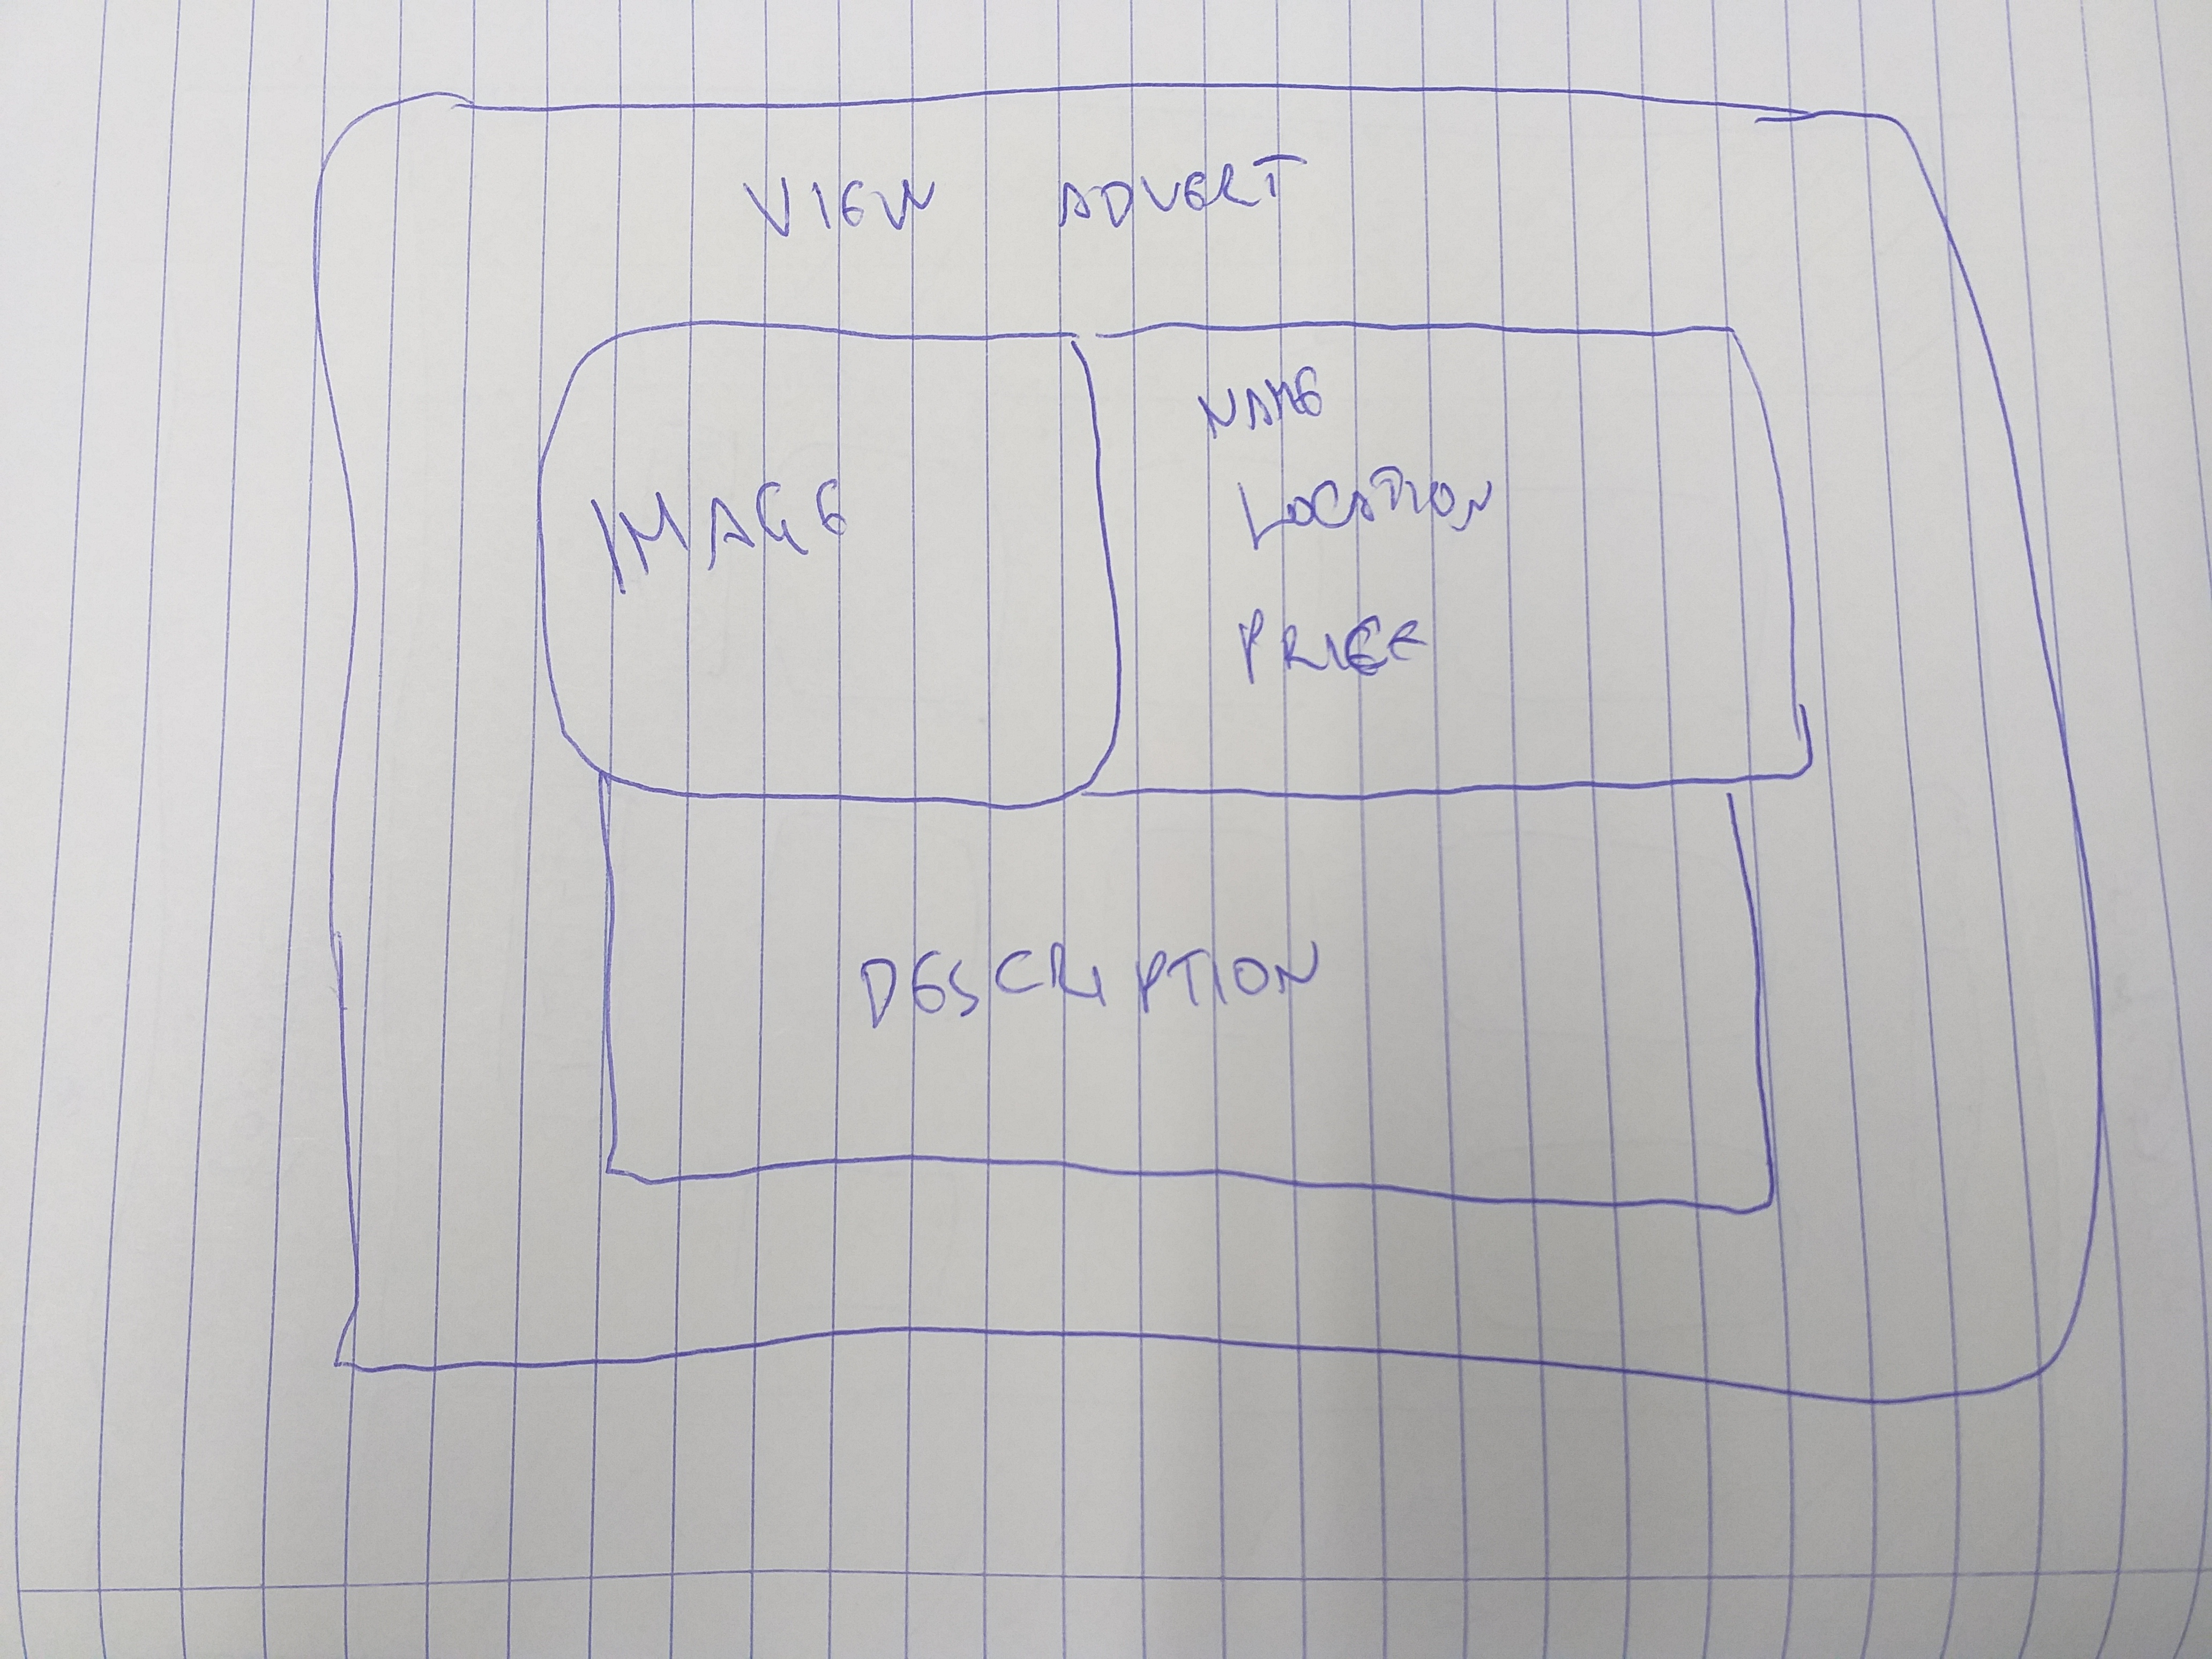 VIEW ADVERT
IMAGE
NAME
LOCATION
PRICE
DESCRIPTION